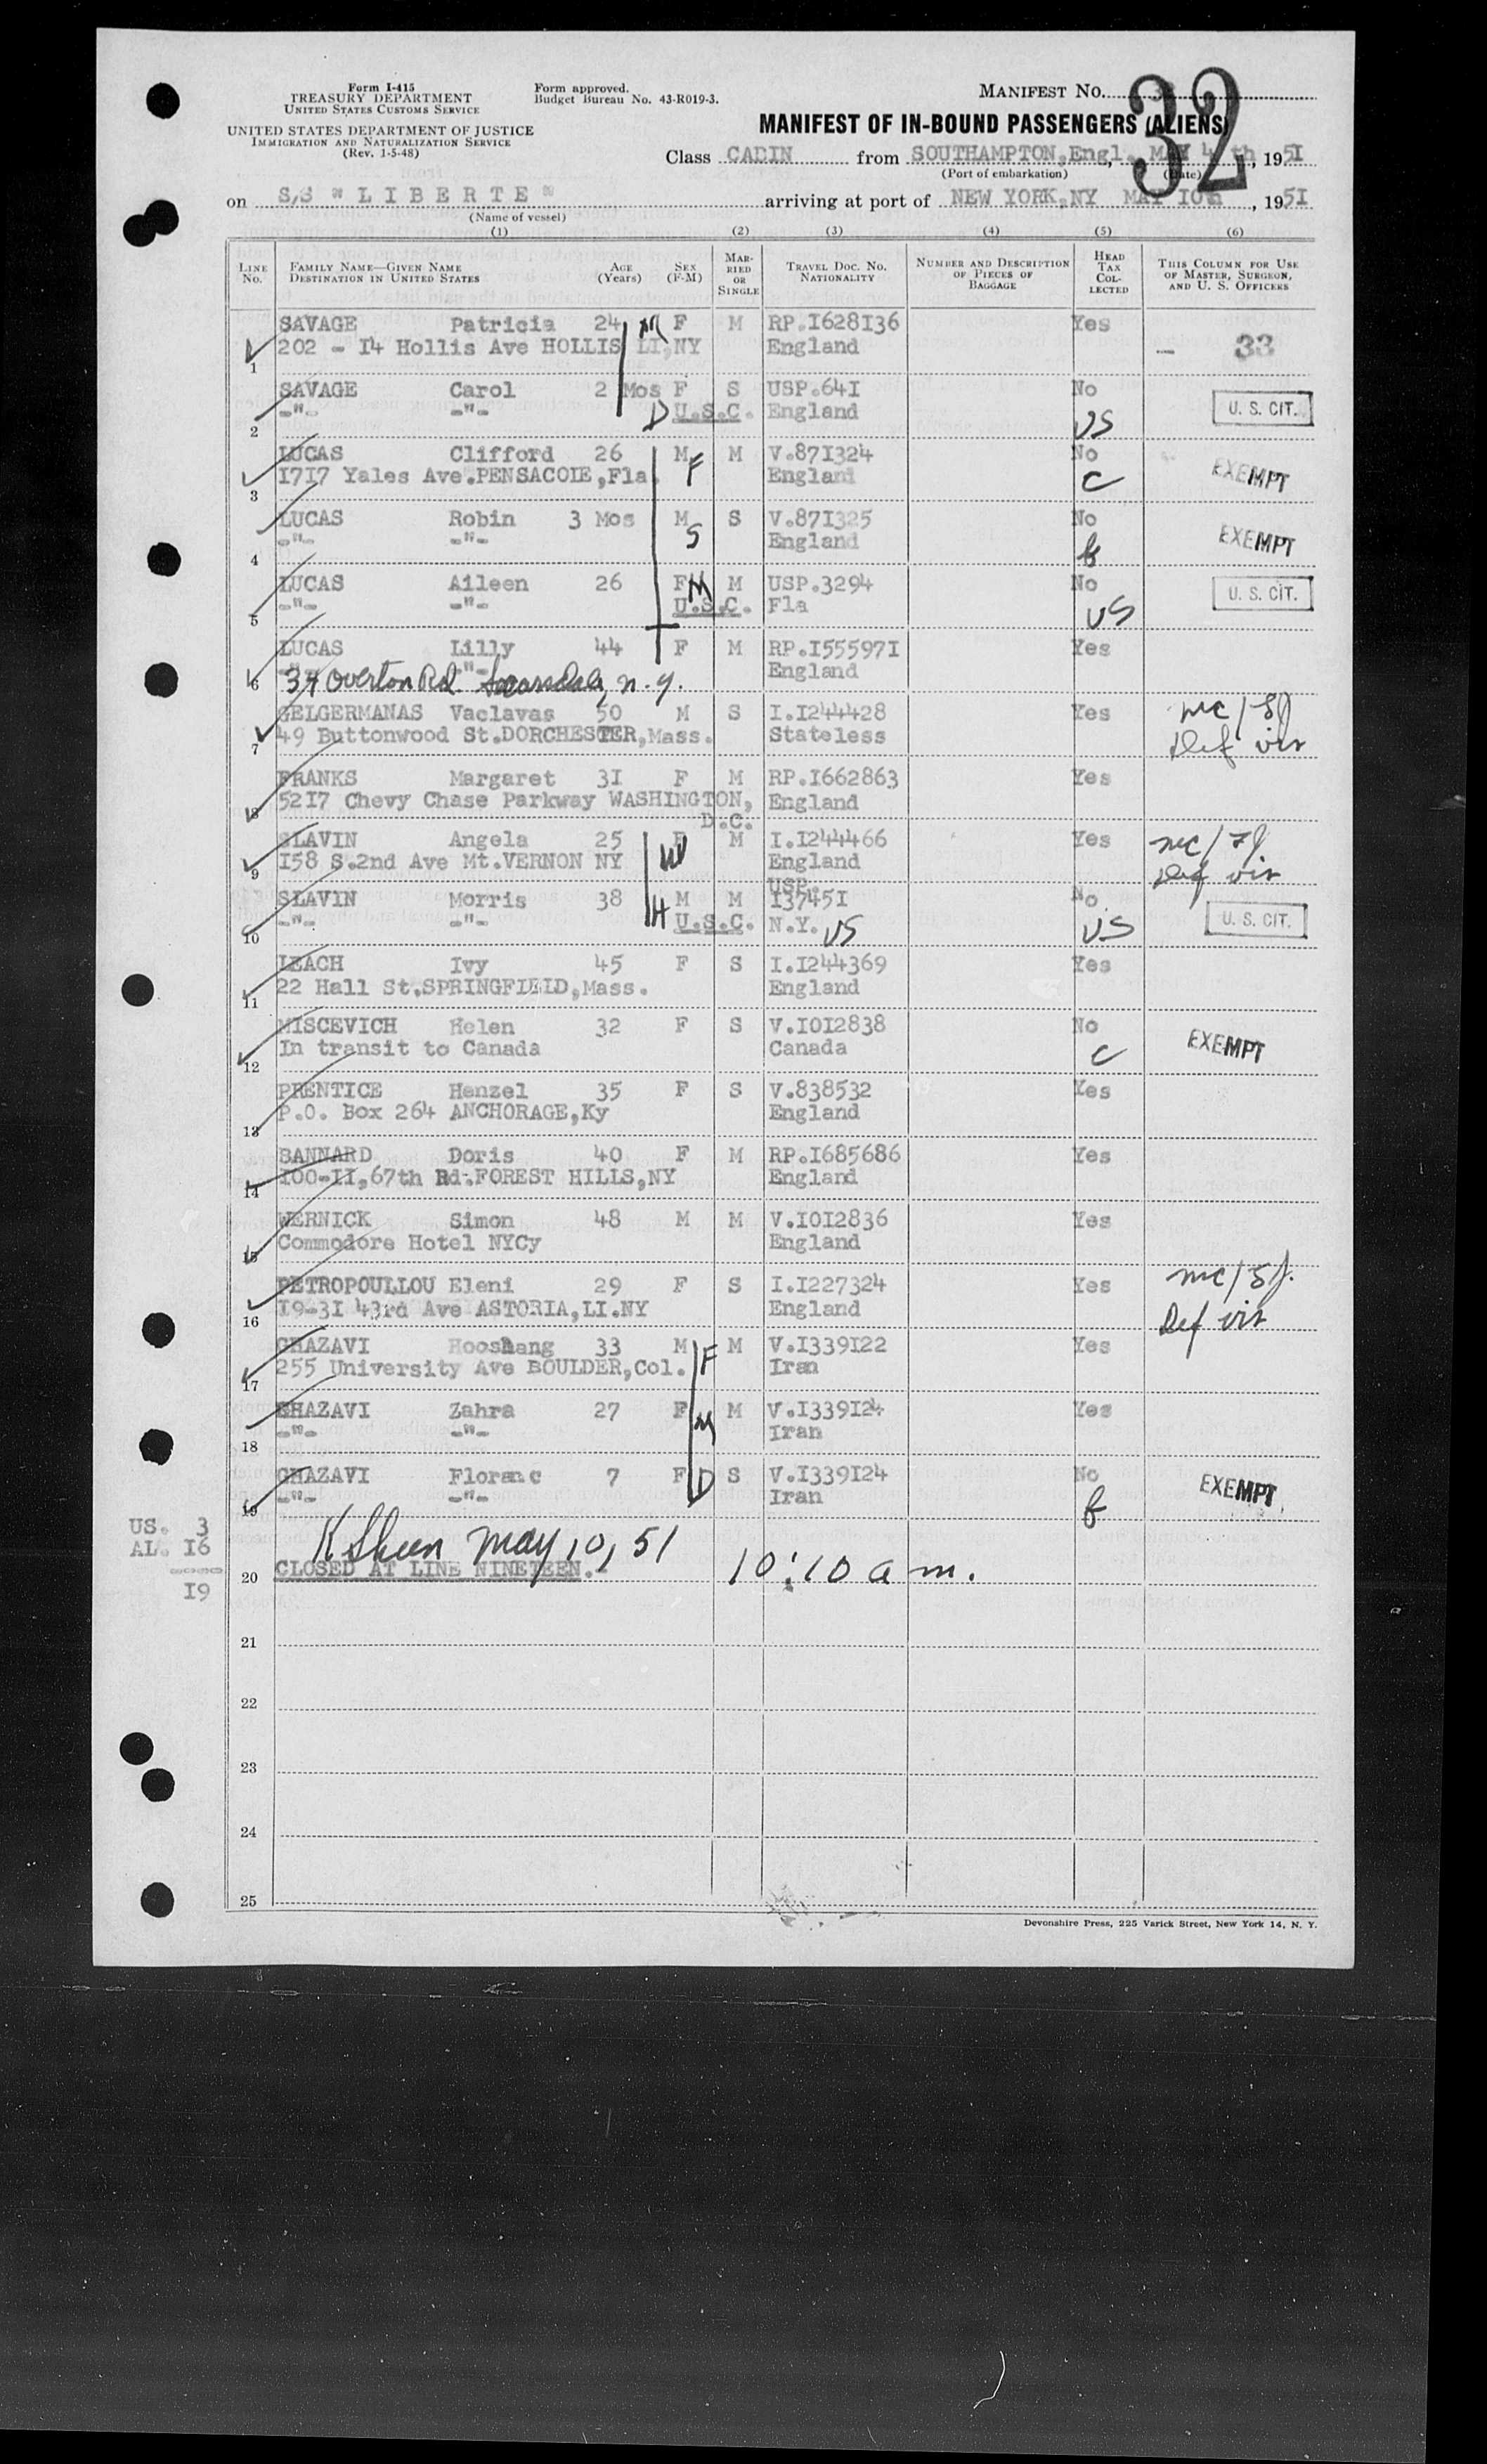 Form I-415
TREASURY DEPARTMENT
UNITED STATES CUSTOMS SERVICE
UNITED STATES DEPARTMENT OF JUSTICE
IMMIGRATION AND NATURALIZATION SERVICE
(Rev. 1-5-48)
Form approved.
Budget Bureau No. 43-R019-3.
MANIFEST NO. 32
MANIFEST OF IN-BOUND PASSENGERS (ALIENS)
Class CABIN from SOUTHAMPTON,Engl., MAY 4 th, 1951
(Port of embarkation) (Date)
on S/S " L I B E R T E " arriving at port of NEW YORK,NY MAY I0th, 195I
(Name of vessel)
(1) (2) (3) (4) (5) (6)
LINE NO. FAMILY NAME—GIVEN NAME DESTINATION IN UNITED STATES AGE (Years) SEX (F-M) MARRIED OR SINGLE TRAVEL DOC. NO. NATIONALITY NUMBER AND DESCRIPTION OF PIECES OF BAGGAGE HEAD TAX COLLECTED THIS COLUMN FOR USE OF MASTER, SURGEON, AND U. S. OFFICERS
SAVAGE Patricia 24 M F M RP.I628I36 Yes
1 202 - I4 Hollis Ave HOLLIS LI,NY England — 33
SAVAGE Carol 2 Mos F S USP.64I No
2 -"- -"- D U.S.C. England US U. S. CIT.
LUCAS Clifford 26 M F M V.87I324 No
3 I7I7 Yales Ave.PENSACOIE,Fla. England C EXEMPT
LUCAS Robin 3 Mos M S V.87I325 No
4 -"- -"- S England b EXEMPT
LUCAS Aileen 26 F M M USP.3294 No
5 -"- -"- U.S.C. Fla US U. S. CIT.
LUCAS Lilly 44 F M RP.I55597I Yes
6 -"- -"- England
37 Overton Rd. Scarsdale, n.y.
GELGERMANAS Vaclavas 50 M S I.I244428 Yes mc/8f
7 49 Buttonwood St.DORCHESTER,Mass. Stateless Def vis
FRANKS Margaret 3I F M RP.I662863 Yes
8 52I7 Chevy Chase Parkway WASHINGTON, England
D.C.
SLAVIN Angela 25 F W M I.I244466 Yes mc/7f
9 I58 S.2nd Ave Mt.VERNON NY England Def vis
USP.
SLAVIN Morris 38 M M I3745I No
10 -"- -"- H U.S.C. N.Y. US US U. S. CIT.
LEACH Ivy 45 F S I.I244369 Yes
11 22 Hall St.SPRINGFIELD,Mass. England
MISCEVICH Helen 32 F S V.I0I2838 No
12 In transit to Canada Canada C EXEMPT
PRENTICE Henzel 35 F S V.838532 Yes
13 P.O. Box 264 ANCHORAGE,Ky England
BANNARD Doris 40 F M RP.I685686 Yes
14 I00-II,67th Rd.FOREST HILLS,NY England
WERNICK Simon 48 M M V.I0I2836 Yes
15 Commodore Hotel NYCy England
PETROPOULLOU Eleni 29 F S I.I227324 Yes mc/5f.
16 I9-3I 43rd Ave ASTORIA,LI.NY England Def vis
GHAZAVI Hooshang 33 M F M V.I339I22 Yes
17 255 University Ave BOULDER,Col. Iran
GHAZAVI Zahra 27 F M M V.I339I24 Yes
18 -"- -"- Iran
GHAZAVI Floranc 7 F D S V.I339I24 No
19 -"- -"- Iran b EXEMPT
US. 3
AL. I6
I9
K Sheen May 10, 51 10:10 a m.
20 CLOSED AT LINE NINETEEN.-
21
22
23
24
25
Devonshire Press, 225 Varick Street, New York 14, N. Y.